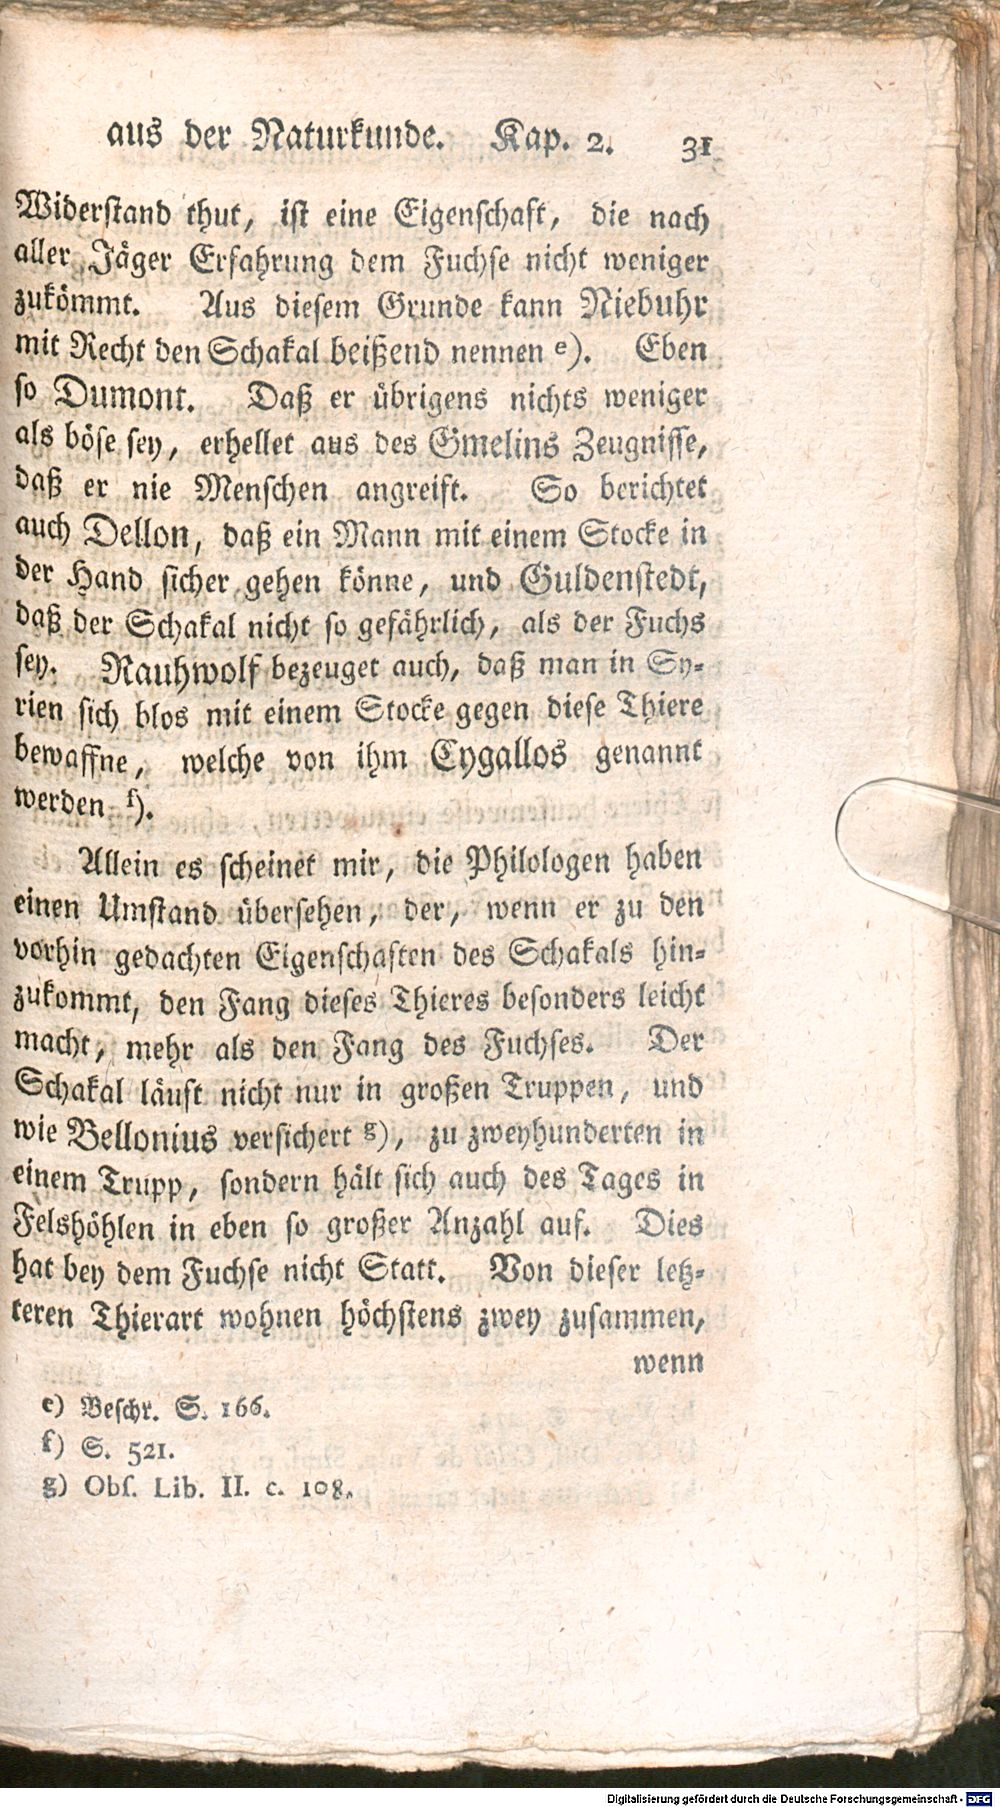 aus der Naturkunde. Kap. 2. 31
Widerstand thut, ist eine Eigenschaft, die nach
aller Jäger Erfahrung dem Fuchse nicht weniger
zukömmt. Aus diesem Grunde kann Niebuhr
mit Recht den Schakal beißend nennen e). Eben
so Dumont. Daß er übrigens nichts weniger
als böse sey, erhellet aus des Gmelins Zeugnisse,
daß er nie Menschen angreift. So berichtet
auch Dellon, daß ein Mann mit einem Stocke in
der Hand sicher gehen könne, und Guldenstedt,
daß der Schakal nicht so gefährlich, als der Fuchs
sey. Rauhwolf bezeuget auch, daß man in Sy-
rien sich blos mit einem Stocke gegen diese Thiere
bewaffne, welche von ihm Cygallos genannt
werden f).
Allein es scheinet mir, die Philologen haben
einen Umstand übersehen, der, wenn er zu den
vorhin gedachten Eigenschaften des Schakals hin-
zukommt, den Fang dieses Thieres besonders leicht
macht, mehr als den Fang des Fuchses. Der
Schakal läuft nicht nur in großen Truppen, und
wie Bellonius versichert g), zu zweyhunderten in
einem Trupp, sondern hält sich auch des Tages in
Felshöhlen in eben so großer Anzahl auf. Dies
hat bey dem Fuchse nicht Statt. Von dieser letz-
teren Thierart wohnen höchstens zwey zusammen,
wenn
e) Beschr. S. 166.
f) S. 521.
g) Obs. Lib. II. c. 108.
Digitalisierung gefördert durch die Deutsche Forschungsgemeinschaft - DFG